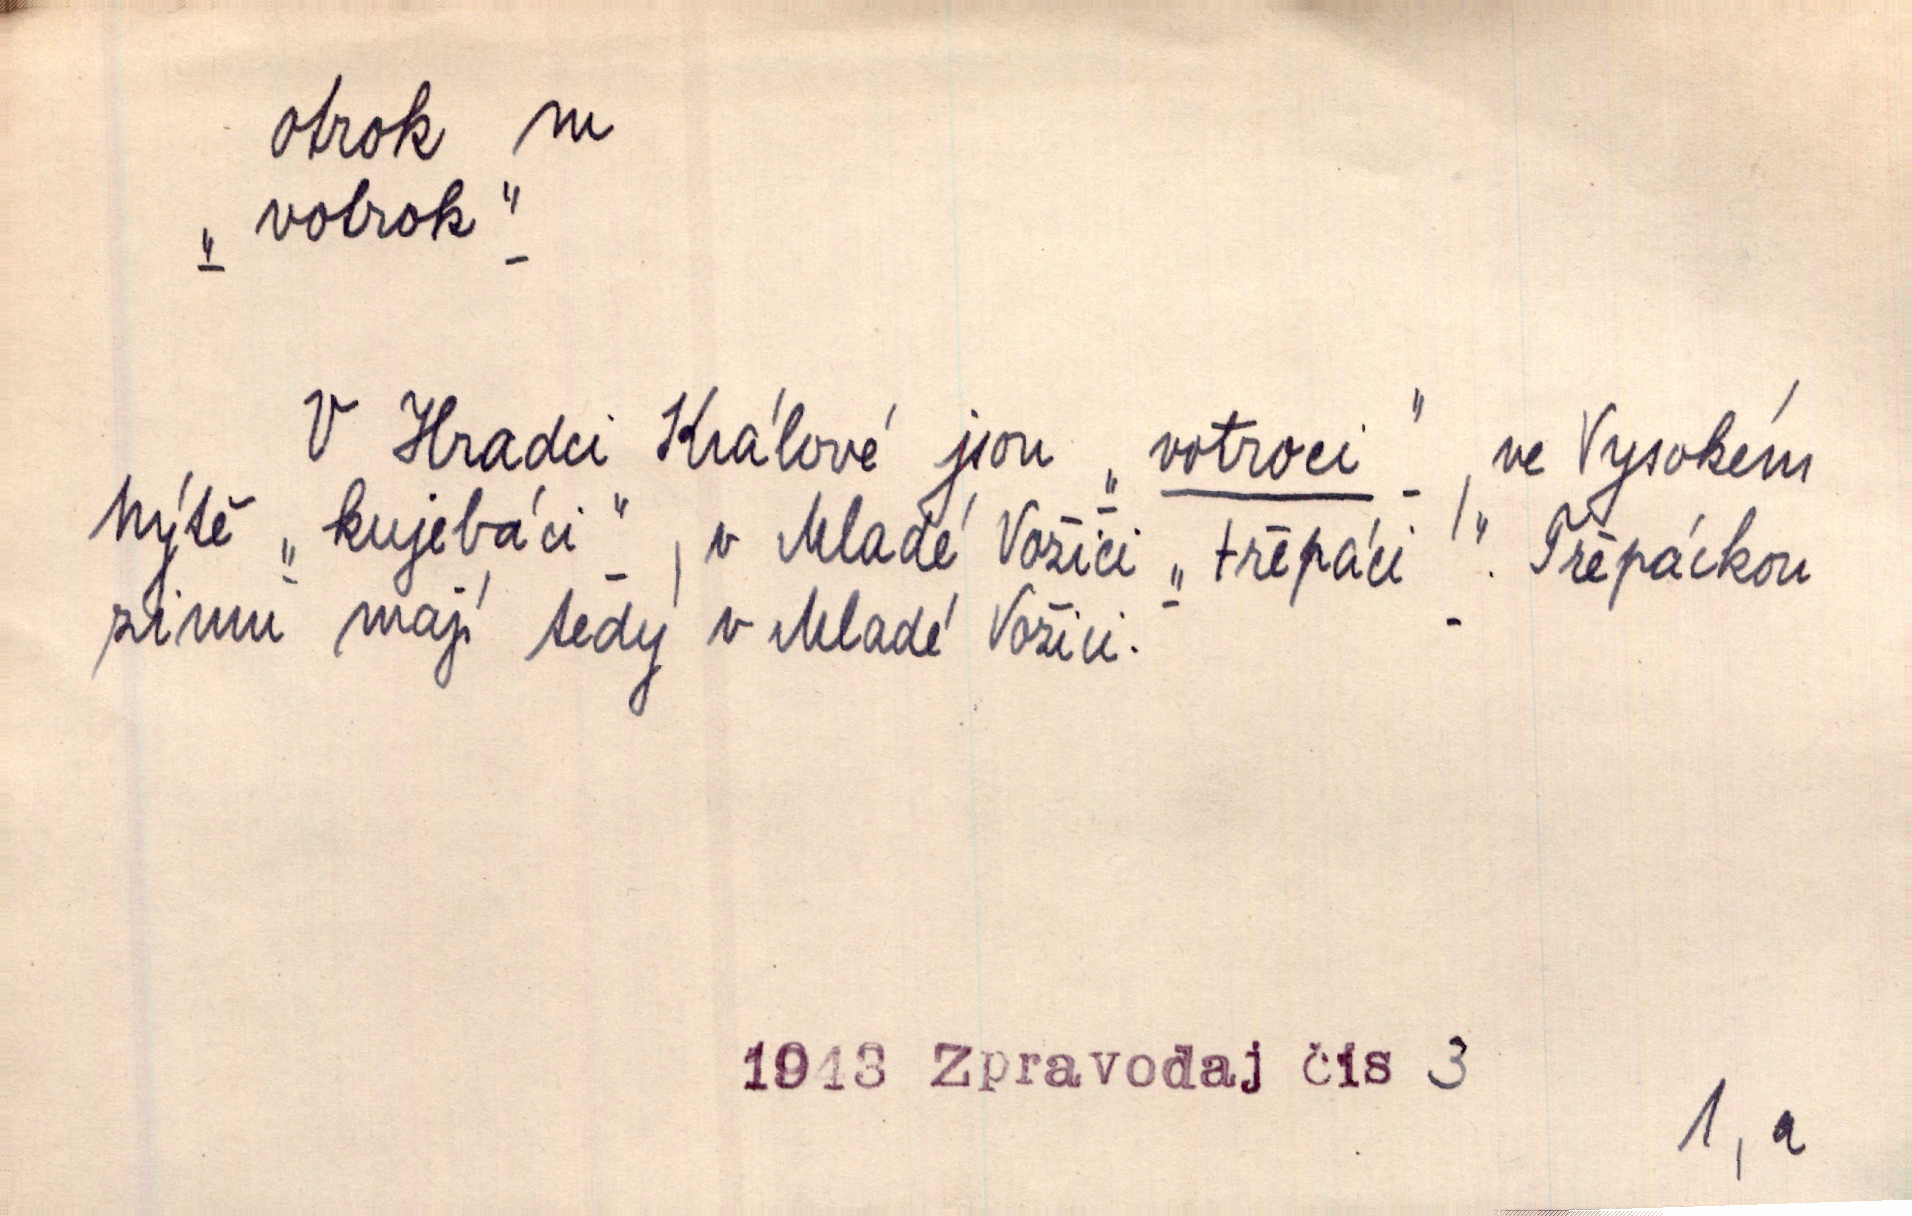 otrok m
„votrok"
V Hradci Králové jsou „votroci", ve Vysokém
Mýtě „kujebáci", v Mladé Vožici „třepáci". Třepáckou
zimu mají tedy v Mladé Vožici.
1943 Zpravodaj čis 3
1, a